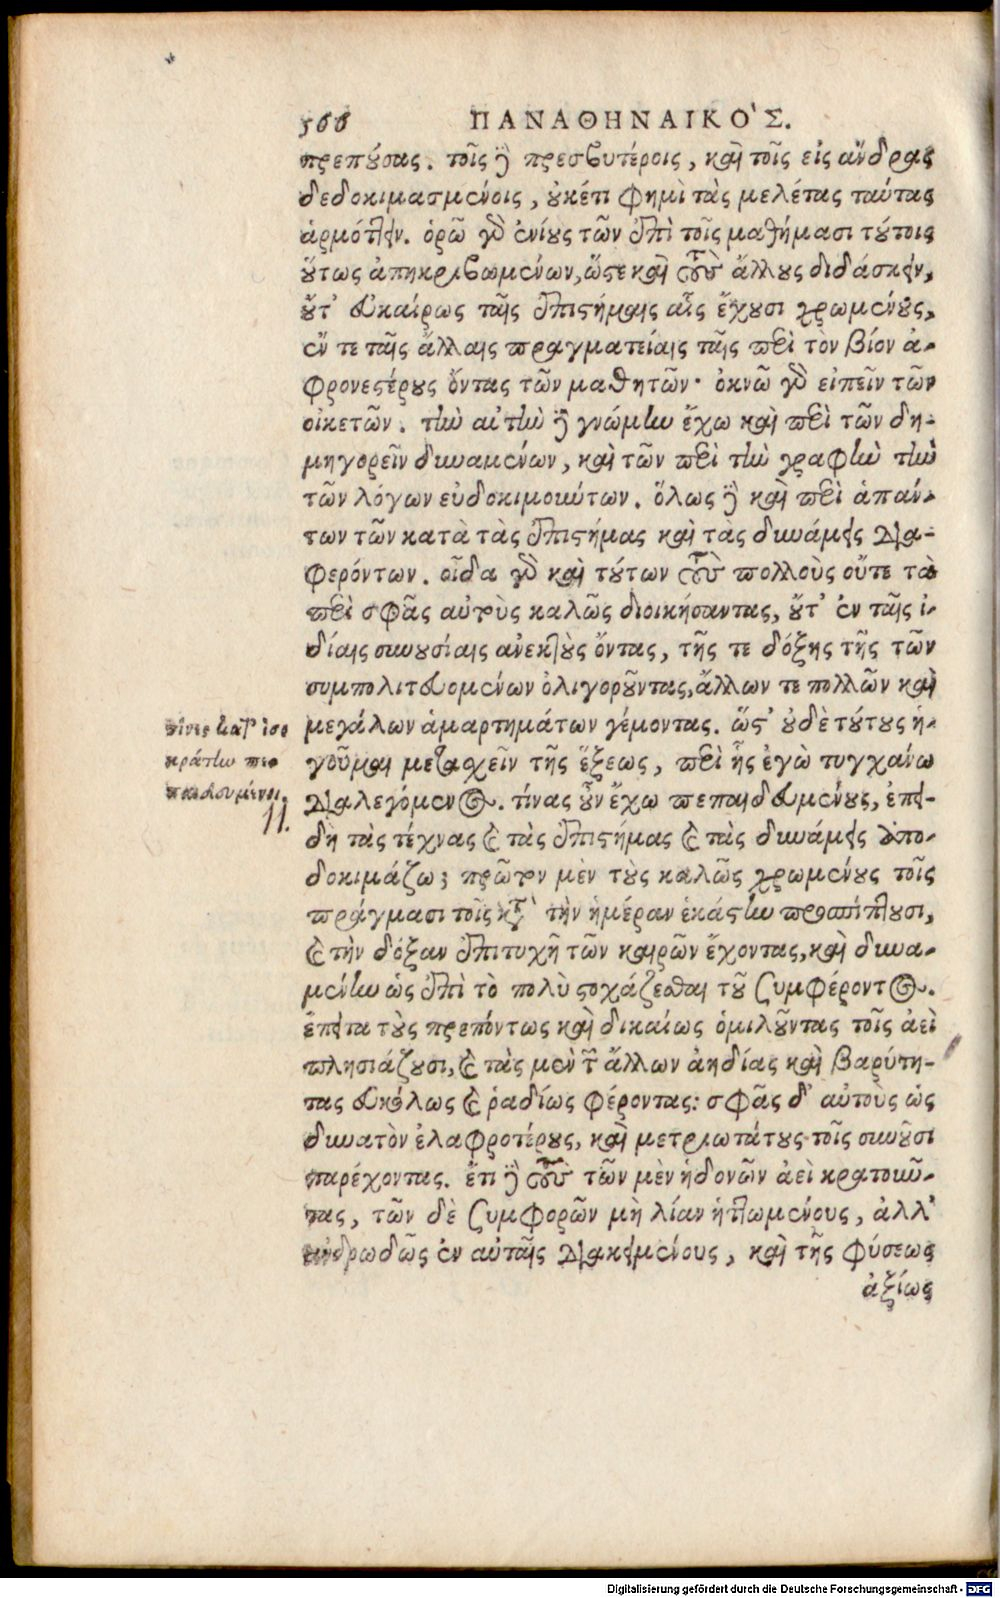 566 ΠΑΝΑΘΗΝΑΙΚΟ'Σ.
πρεπούσας. τοῖς δὲ πρεσβυτέροις, καὶ τοῖς εἰς ἄνδρας
δεδοκιμασμένοις, οὐκέτι φημὶ τὰς μελέτας ταύτας
ἁρμόττειν. ὁρῶ γὰρ ἐνίους τῶν ἐπὶ τοῖς μαθήμασι τούτοις
οὕτως ἀπηκριβωμένων, ὥστε καὶ τοὺς ἄλλους διδάσκειν,
οὔτ' εὐκαίρως ταῖς ἐπιστήμαις αἷς ἔχουσι χρωμένους,
ἔν τε ταῖς ἄλλαις πραγματείαις ταῖς περὶ τὸν βίον ἀ-
φρονεστέρους ὄντας τῶν μαθητῶν· ὀκνῶ γὰρ εἰπεῖν τῶν
οἰκετῶν. τὴν αὐτὴν δὲ γνώμην ἔχω καὶ περὶ τῶν δη-
μηγορεῖν δυναμένων, καὶ τῶν περὶ τὴν γραφὴν τὴν
τῶν λόγων εὐδοκιμούντων. ὅλως δὲ καὶ περὶ ἁπάν-
των τῶν κατὰ τὰς ἐπιστήμας καὶ τὰς δυνάμεις δια-
φερόντων. οἶδα γὰρ καὶ τούτων τοὺς πολλοὺς οὔτε τὰ
περὶ σφᾶς αὐτοὺς καλῶς διοικήσαντας, οὔτ' ἐν ταῖς ἰ-
δίαις συνουσίαις ἀνεκτοὺς ὄντας, τῆς τε δόξης τῆς τῶν
συμπολιτευομένων ὀλιγοροῦντας, ἄλλων τε πολλῶν καὶ
μεγάλων ἁμαρτημάτων γέμοντας. ὥστ' οὐδὲ τούτους ἡ-
γοῦμαι μετασχεῖν τῆς ἕξεως, περὶ ἧς ἐγὼ τυγχάνω
διαλεγόμενος. τίνας οὖν ἔχω πεπαιδευμένους, ἐπει-
δὴ τὰς τέχνας καὶ τὰς ἐπιστήμας καὶ τὰς δυνάμεις ἀπο-
δοκιμάζω; πρῶτον μὲν τοὺς καλῶς χρωμένους τοῖς
πράγμασι τοῖς κατὰ τὴν ἡμέραν ἑκάστην προσπίπτουσι,
καὶ τὴν δόξαν ἐπιτυχῆ τῶν καιρῶν ἔχοντας, καὶ δυνα-
μένην ὡς ἐπὶ τὸ πολὺ στοχάζεσθαι τοῦ συμφέροντος.
ἔπειτα τοὺς πρεπόντως καὶ δικαίως ὁμιλοῦντας τοῖς ἀεὶ
πλησιάζουσι, καὶ τὰς μὲν τῶν ἄλλων ἀηδίας καὶ βαρύτη-
τας εὐκόλως καὶ ῥαδίως φέροντας: σφᾶς δ' αὐτοὺς ὡς
δυνατὸν ἐλαφροτέρους, καὶ μετριωτάτους τοῖς συνοῦσι
παρέχοντας. ἔτι δὲ τοὺς τῶν μὲν ἡδονῶν ἀεὶ κρατοῦν-
τας, τῶν δὲ συμφορῶν μὴ λίαν ἡττωμένους, ἀλλ'
ἀνδρωδῶς ἐν αὐταῖς διακειμένους, καὶ τῆς φύσεως
ἀξίως
τίνες κατ' ἰσο
κράτην πε
παιδευμένοι.
11.
Digitalisierung gefördert durch die Deutsche Forschungsgemeinschaft - DFG